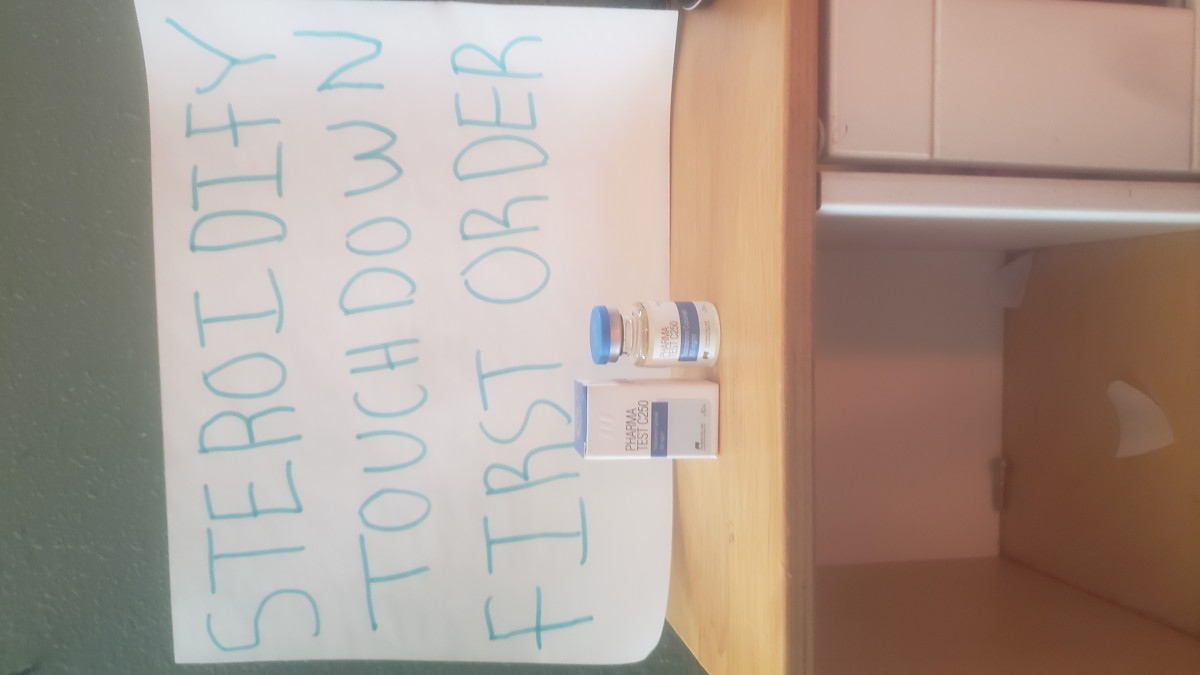 STEROIDIFY
TOUCHDOWN
FIRST ORDER
PHARMA
TEST C250
PHARMA
TEST C250